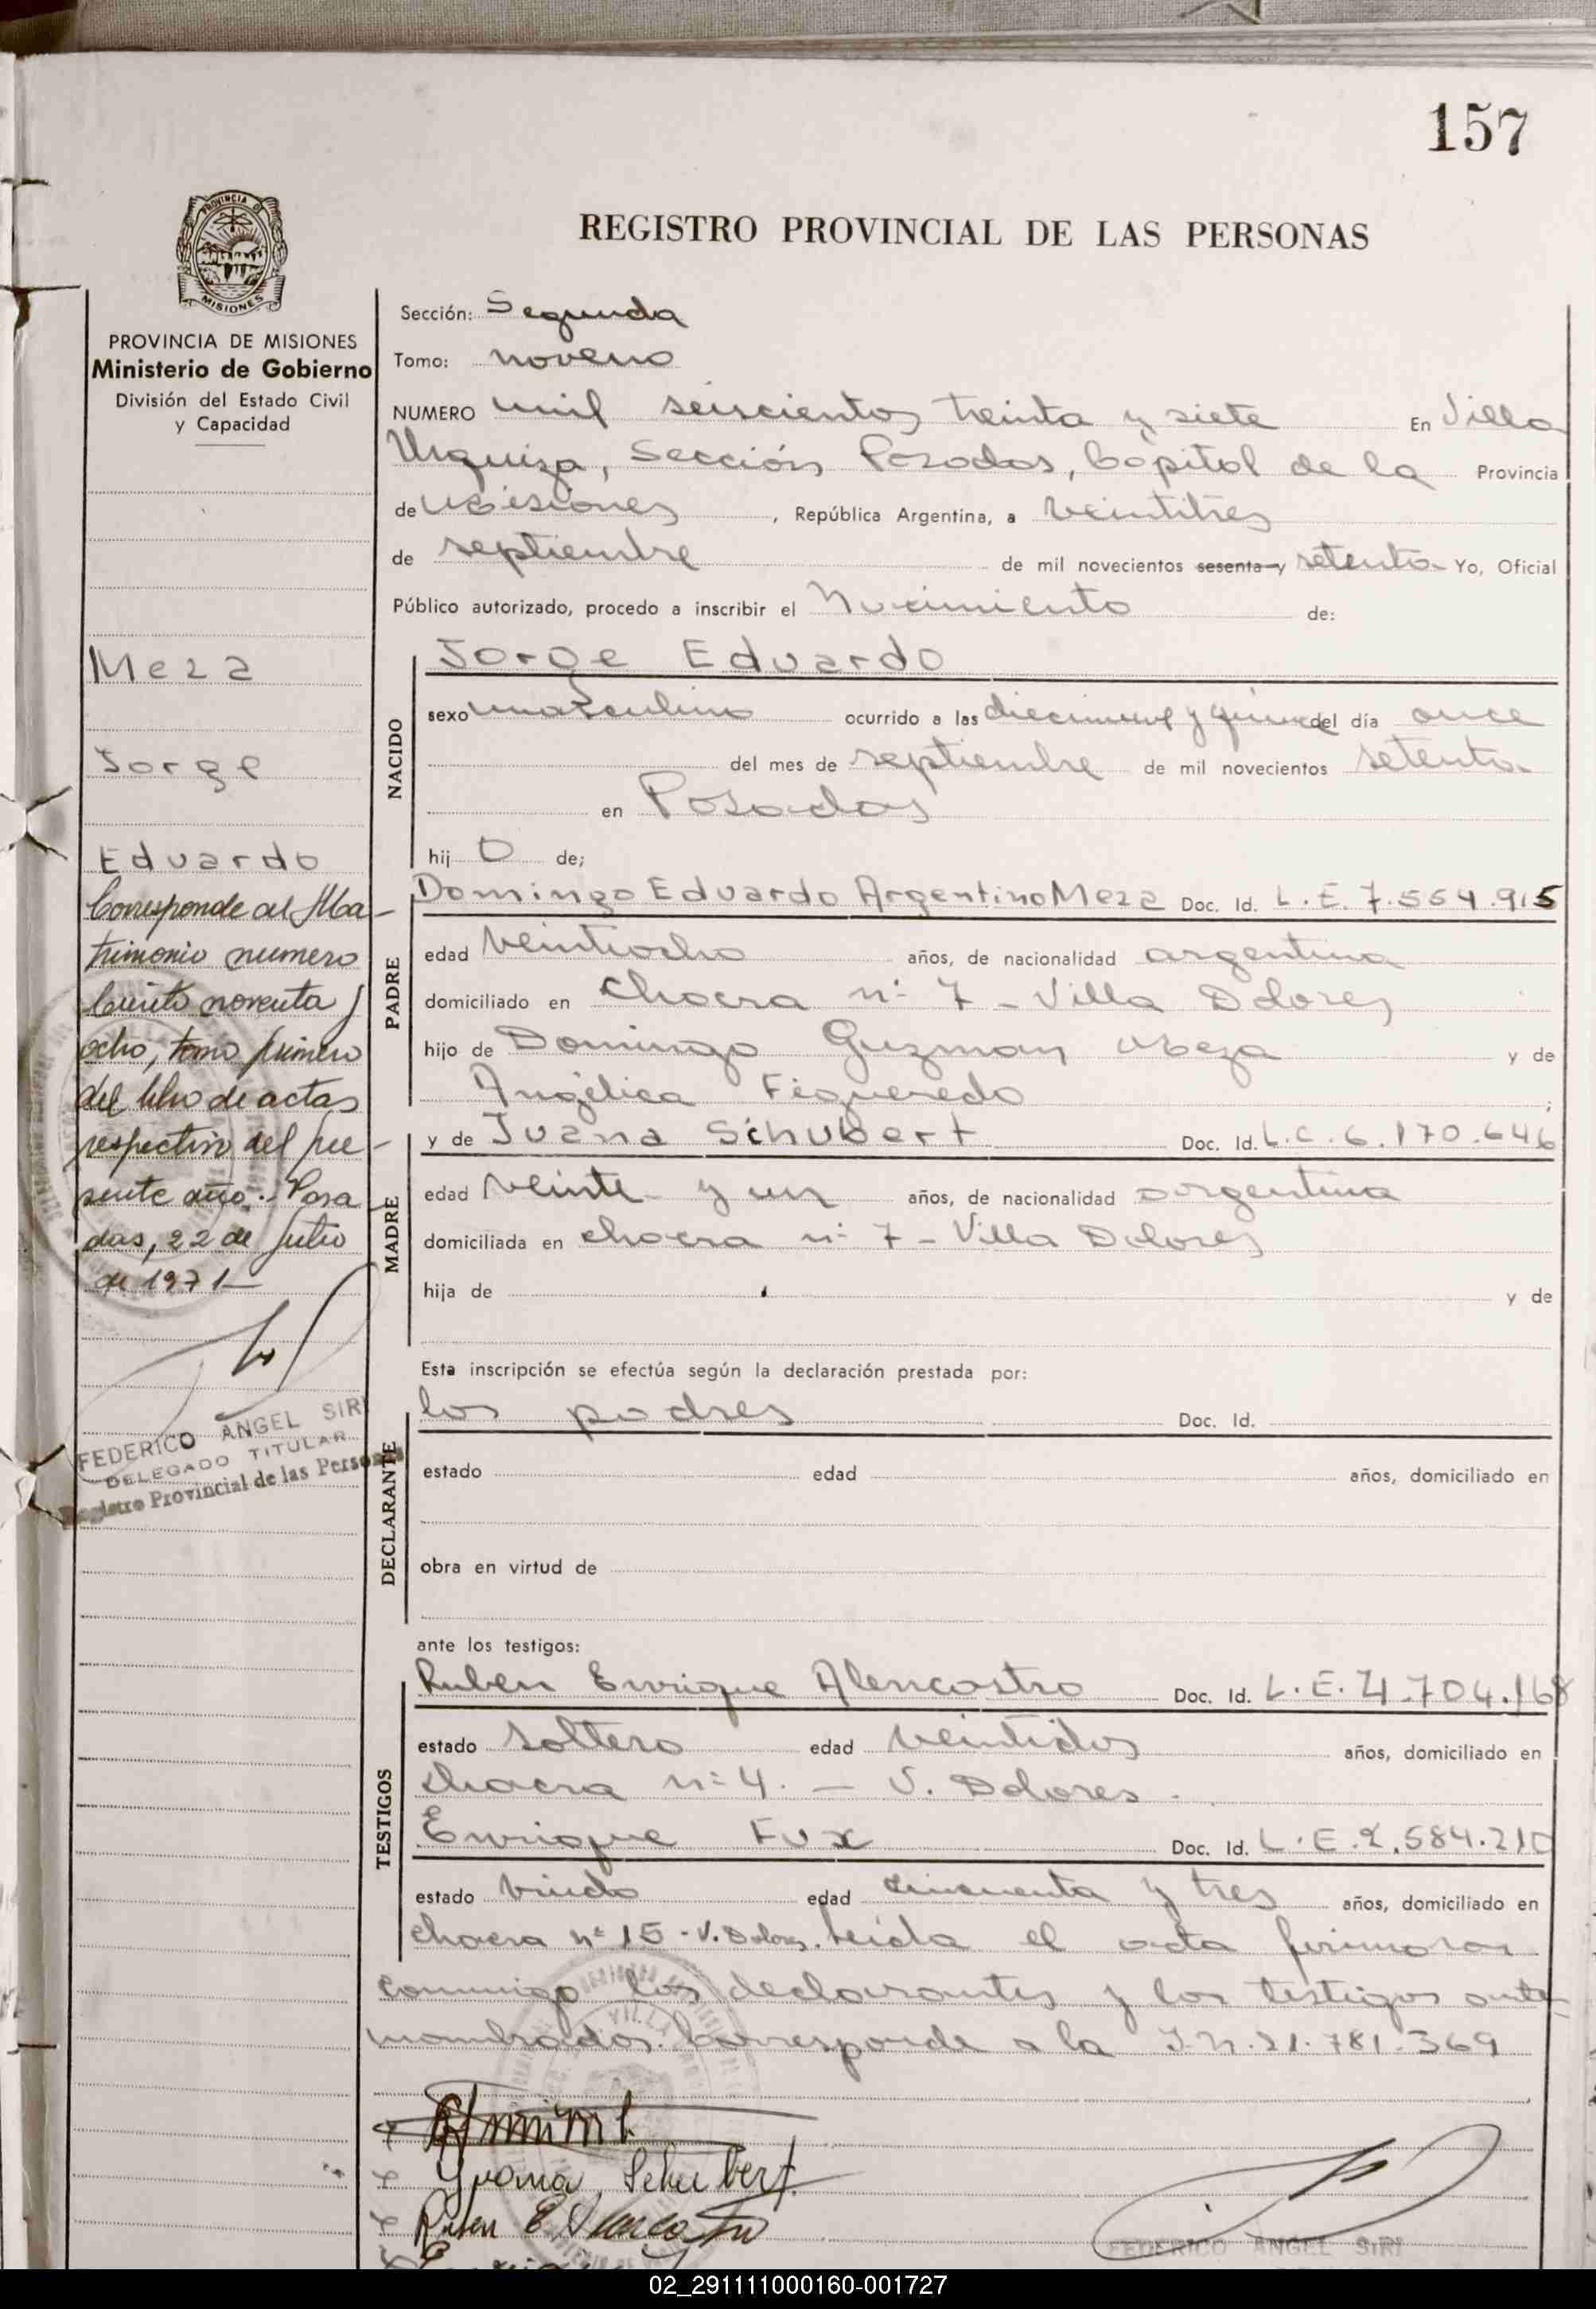 157
PROVINCIA DE
MISIONES
REGISTRO PROVINCIAL DE LAS PERSONAS
PROVINCIA DE MISIONES
Ministerio de Gobierno
División del Estado Civil
y Capacidad
Meza
Jorge
Eduardo
Corresponde al Ma-
trimonio numero
Ciento noventa y
ocho, tomo primero
del libro de actas
respectivo del pre-
sente año.- Posa
das, 22 de Julio
de 1971-
FEDERICO ANGEL SIRI
DELEGADO TITULAR
Registro Provincial de las Personas
Sección: Segunda
Tomo: noveno
NUMERO mil seiscientos treinta y siete En Villa
Urquiza, Sección Posadas, Capital de la Provincia
de Misiones, República Argentina, a veintitres
de septiembre de mil novecientos sesenta y setenta Yo, Oficial
Público autorizado, procedo a inscribir el Nacimiento de:
NACIDO
Jorge Eduardo
sexo masculino ocurrido a las diecinueve y quince del día once
del mes de septiembre de mil novecientos setenta
en Posadas
hij o de;
PADRE
Domingo Eduardo Argentino Meza Doc. Id. L.E. 7.554.915
edad veintiocho años, de nacionalidad argentina
domiciliado en chacra nº 7 - Villa Dolores
hijo de Domingo Guzman Meza y de
Angélica Figueredo ;
MADRE
y de Juana Schubert Doc. Id. L.C. 6.170.646
edad veinte y un años, de nacionalidad argentina
domiciliada en chacra nº 7 - Villa Dolores
hija de y de
Esta inscripción se efectúa según la declaración prestada por:
DECLARANTE
los padres Doc. Id.
estado edad años, domiciliado en
obra en virtud de
ante los testigos:
TESTIGOS
Ruben Enrique Alencastro Doc. Id. L.E. 4.704.168
estado soltero edad veintidos años, domiciliado en
chacra nº 4. - V. Dolores.
Enrique Fux Doc. Id. L.E. 2.584.210
estado viudo edad cincuenta y tres años, domiciliado en
chacra nº 15 - V. Dolores. Leida el acta firmaron
conmigo los declarantes y los testigos ante
nombrados. Corresponde a la I.N. 21.781.369
Juana Schubert
Ruben E Alencastro
FEDERICO ANGEL SIRI
02_291111000160-001727